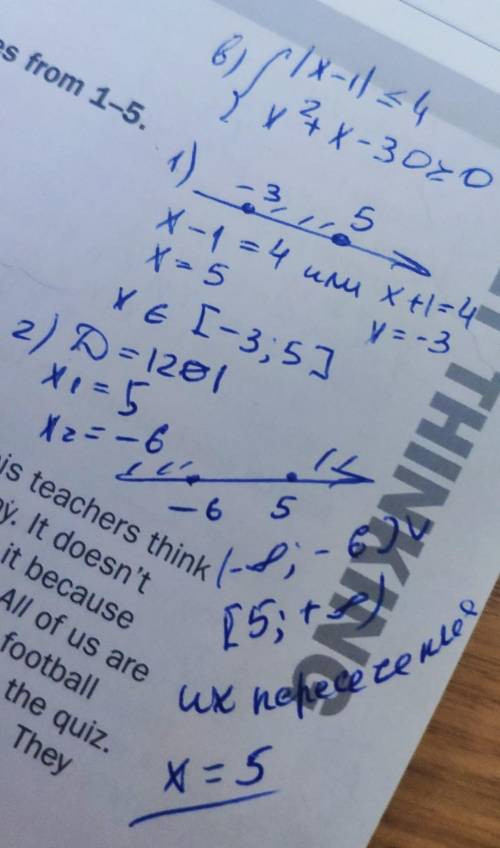 es from 1–5.
в) { |x-1| ≤ 4
x²+x-30≥0
1)
-3 5
x-1=4 или x+1=4
x=5 x=-3
x ∈ [-3;5]
2) D=121
x₁=5
x₂=-6
-6 5
(-∞;-6]∪
[5;+∞)
их пересечение
x=5
THINKING
is teachers think
y. It doesn't
it because
All of us are
football
the quiz.
They